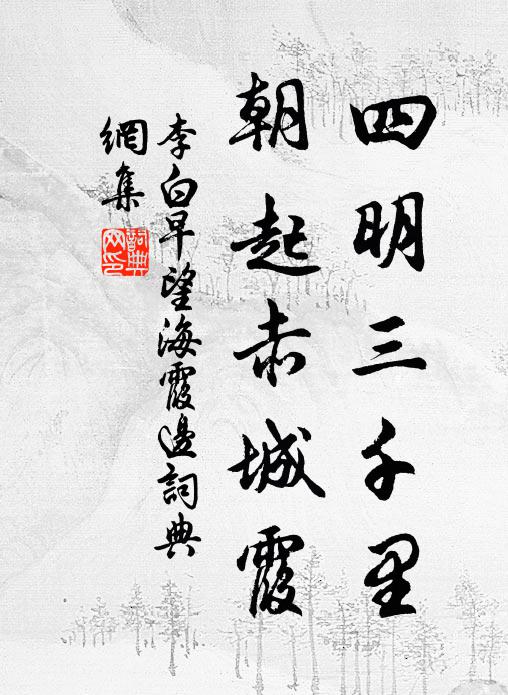 四明三千里
朝起赤城霞
李白早望海霞邊詞典
網集
詞典
网印